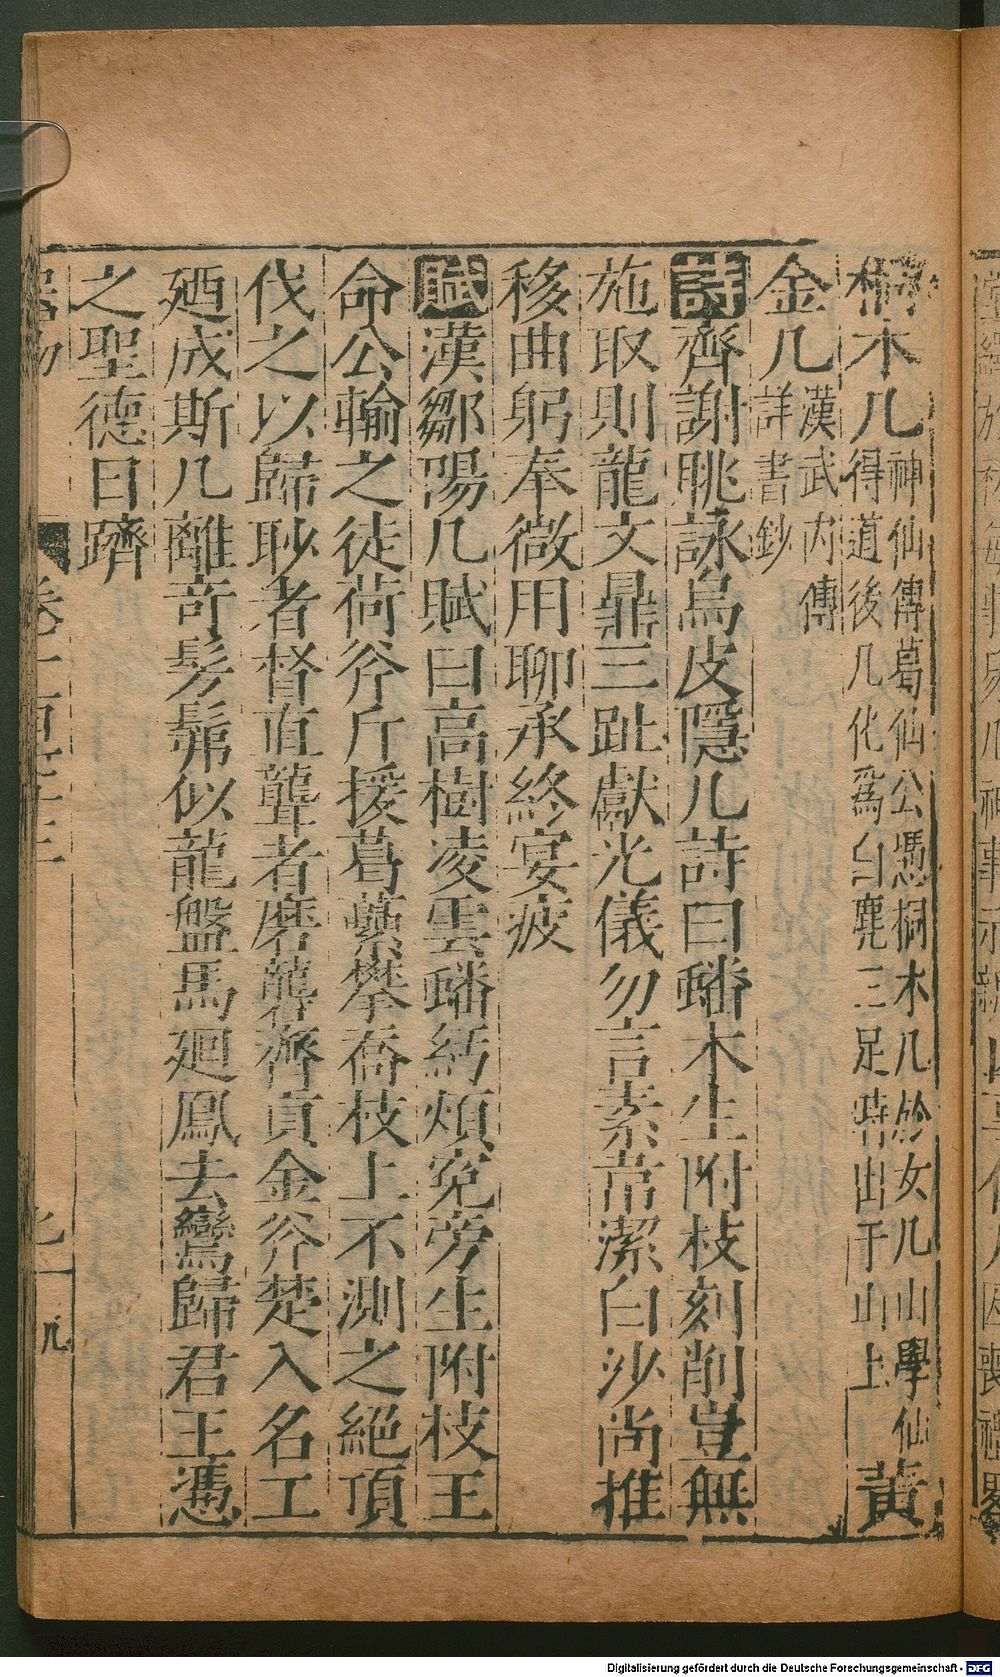 桐木几神仙傳葛仙公憑桐木几於女几山學仙得道後几化爲白麂三足時出于山上黃
金几漢武内傳詳書鈔
詩齊謝眺詠烏皮隱几詩曰蟠木生附枝刻削豈無
施取則龍文鼎三趾獻光儀勿言素韋潔白沙尚推
移曲躬奉微用聊承終宴疲
賦漢鄒陽几賦曰高樹凌雲蟠紆煩寃旁生附枝王
命公輸之徒荷斧斤援葛虆攀喬枝上不測之絕頂
伐之以歸眇者督直聾者磨礱齊貢金斧楚入名工
廼成斯几離奇髣髴似龍盤馬廻鳳去鸞歸君王憑
之聖德日躋
Digitalisierung gefördert durch die Deutsche Forschungsgemeinschaft - DFG